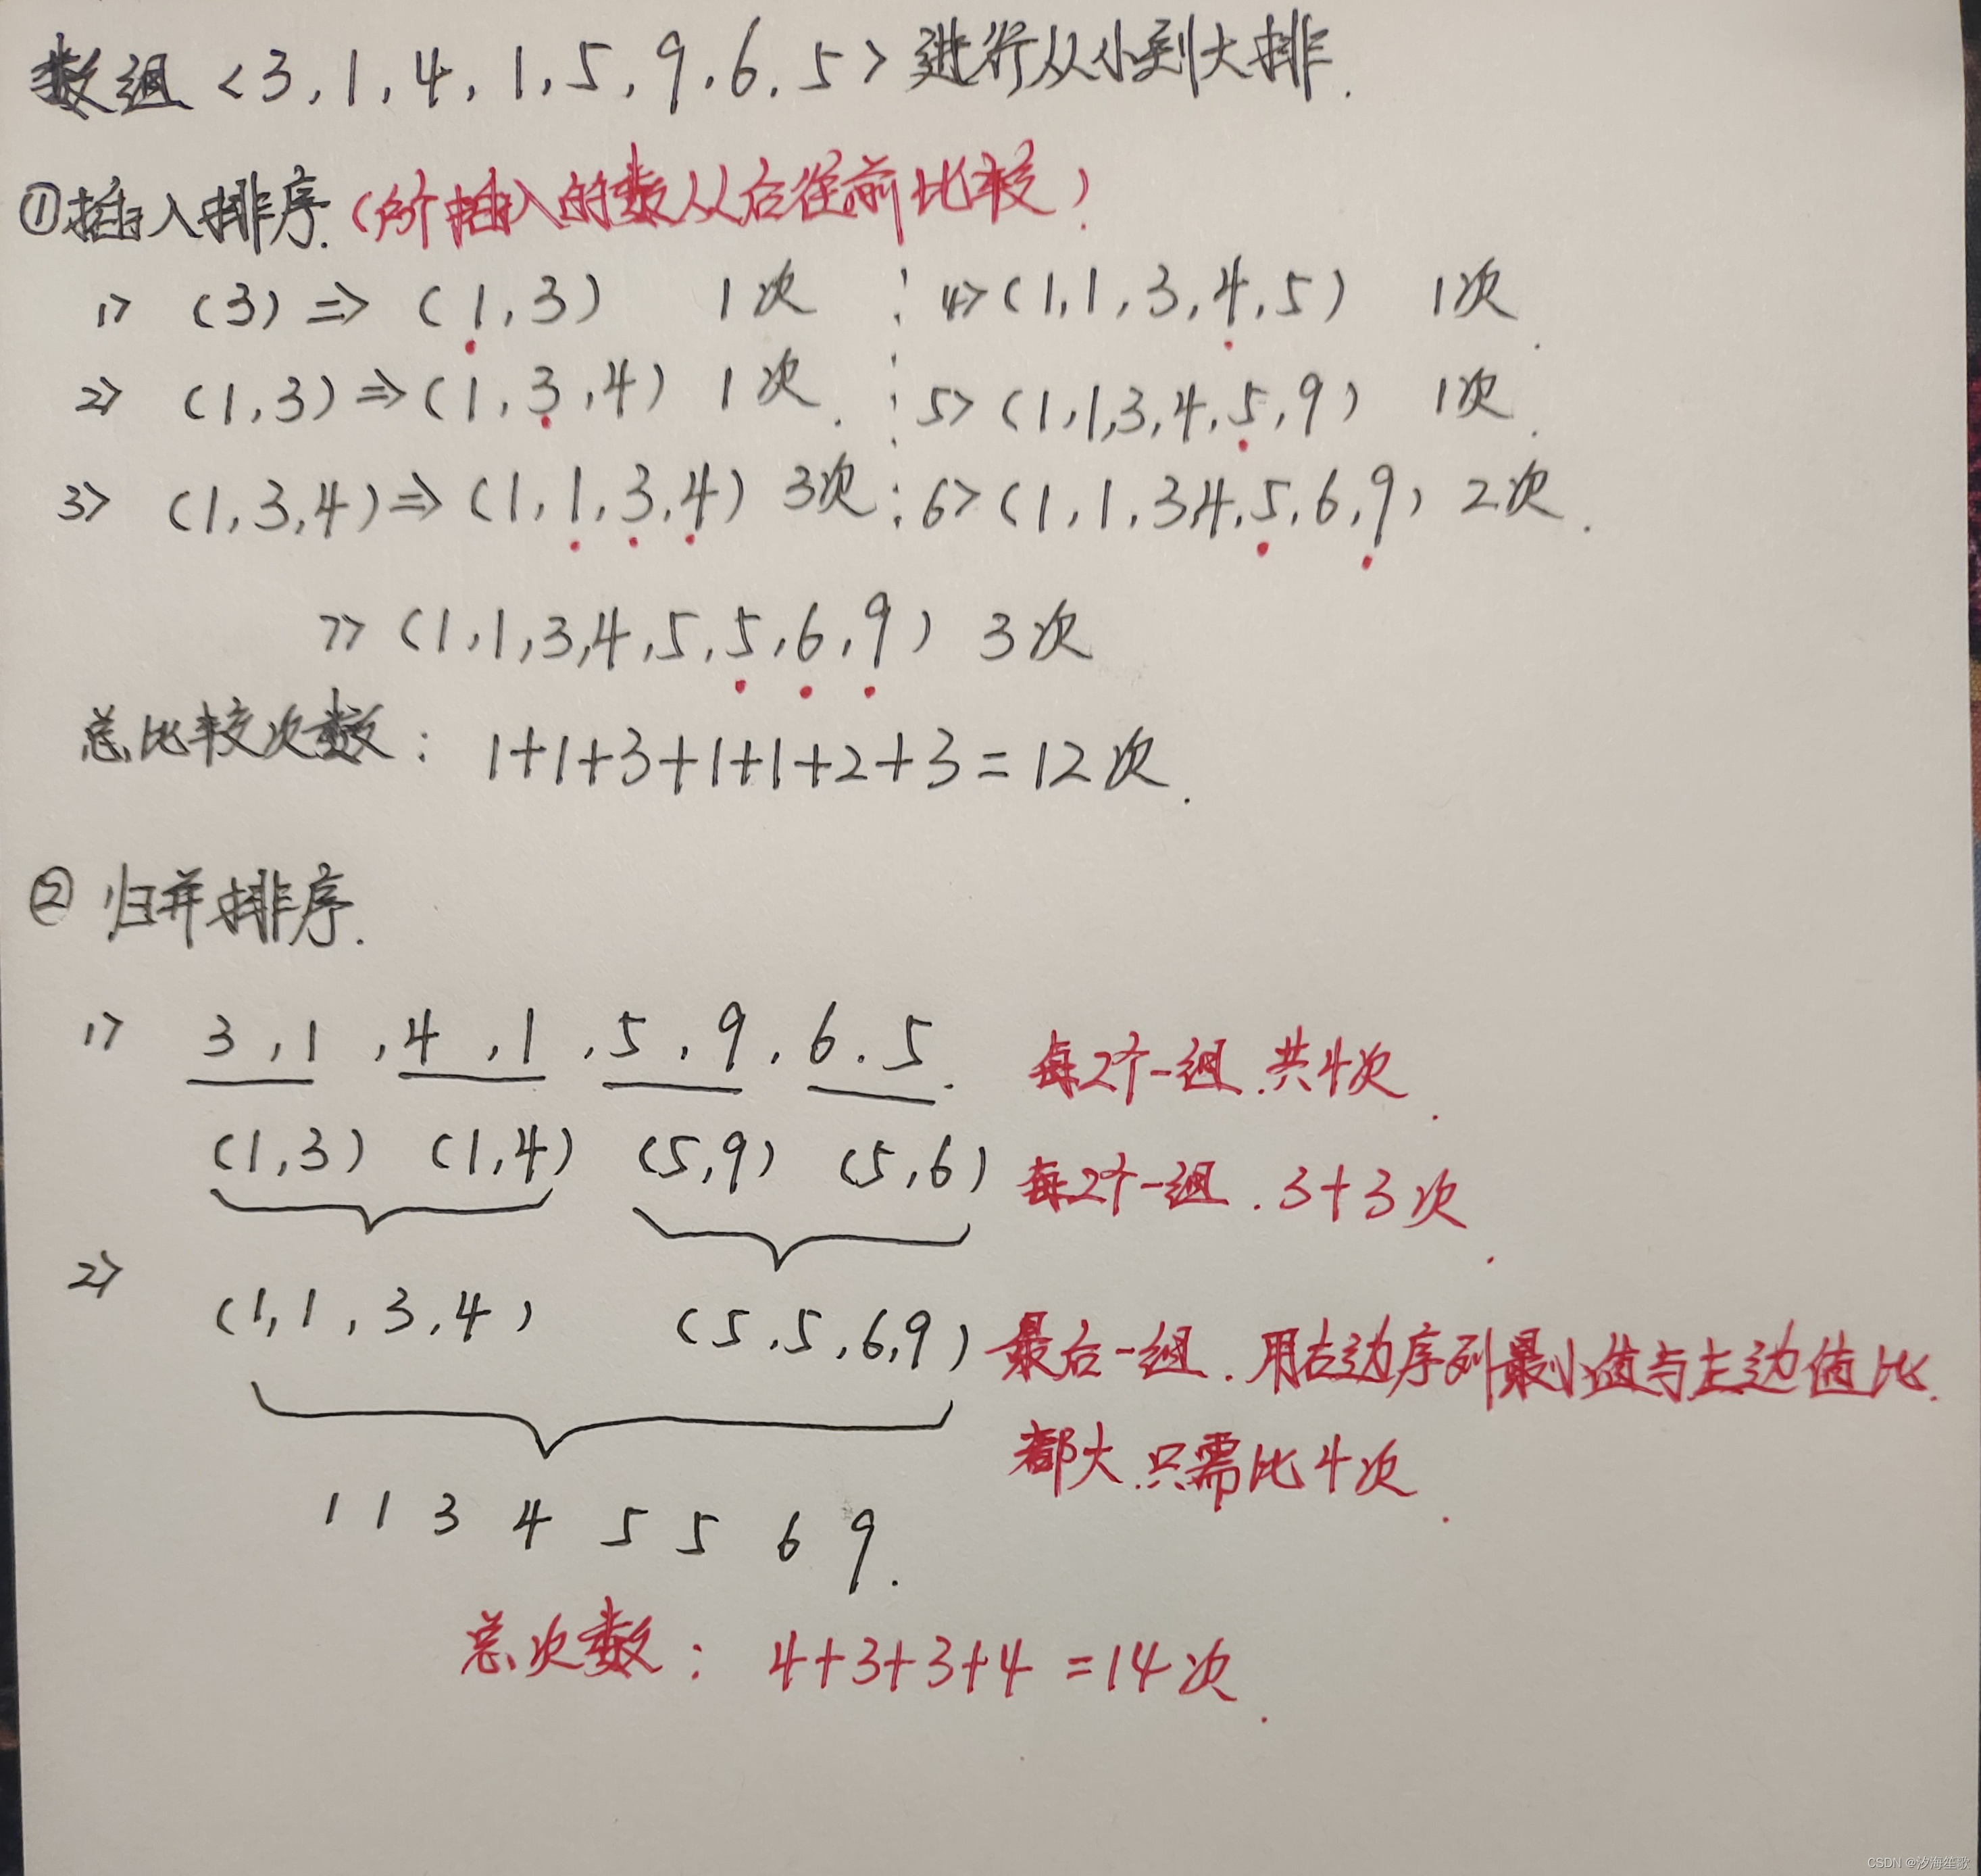 数组<3,1,4,1,5,9,6,5>进行从小到大排.
①插入排序.(所插入的数从后往前比较)
1> (3)⇒(1,3) 1次
4>(1,1,3,4,5) 1次.
2> (1,3)⇒(1,3,4) 1次.
5>(1,1,3,4,5,9) 1次.
3> (1,3,4)⇒(1,1,3,4) 3次
6>(1,1,3,4,5,6,9) 2次.
7>(1,1,3,4,5,5,6,9) 3次
总比较次数: 1+1+3+1+1+2+3=12次.
②归并排序.
1> 3,1,4,1,5,9,6.5. 每2个一组.共4次.
(1,3) (1,4) (5,9) (5,6) 每2个一组.3+3次.
2>
(1,1,3,4) (5,5,6,9) 最后一组.用右边序列最小值与左边值比.
都大.只需比4次.
1 1 3 4 5 5 6 9.
总次数: 4+3+3+4=14次.
CSDN @汐海笙歌